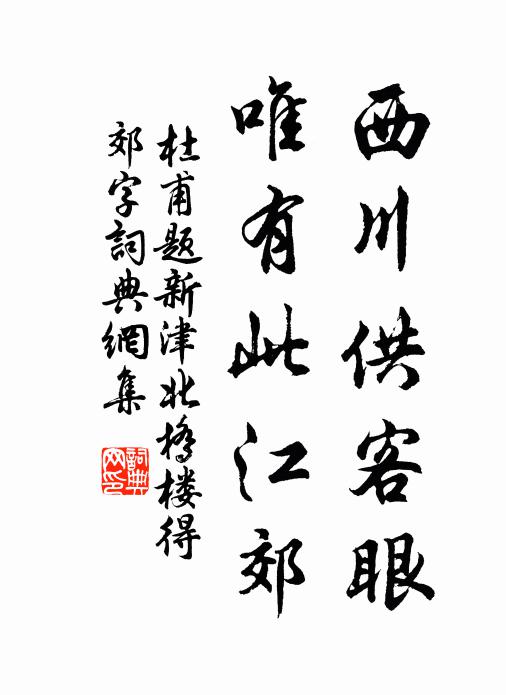 西川供客眼
唯有此江郊
杜甫题新津北橋楼得
郊字詞典網集
詞典网印